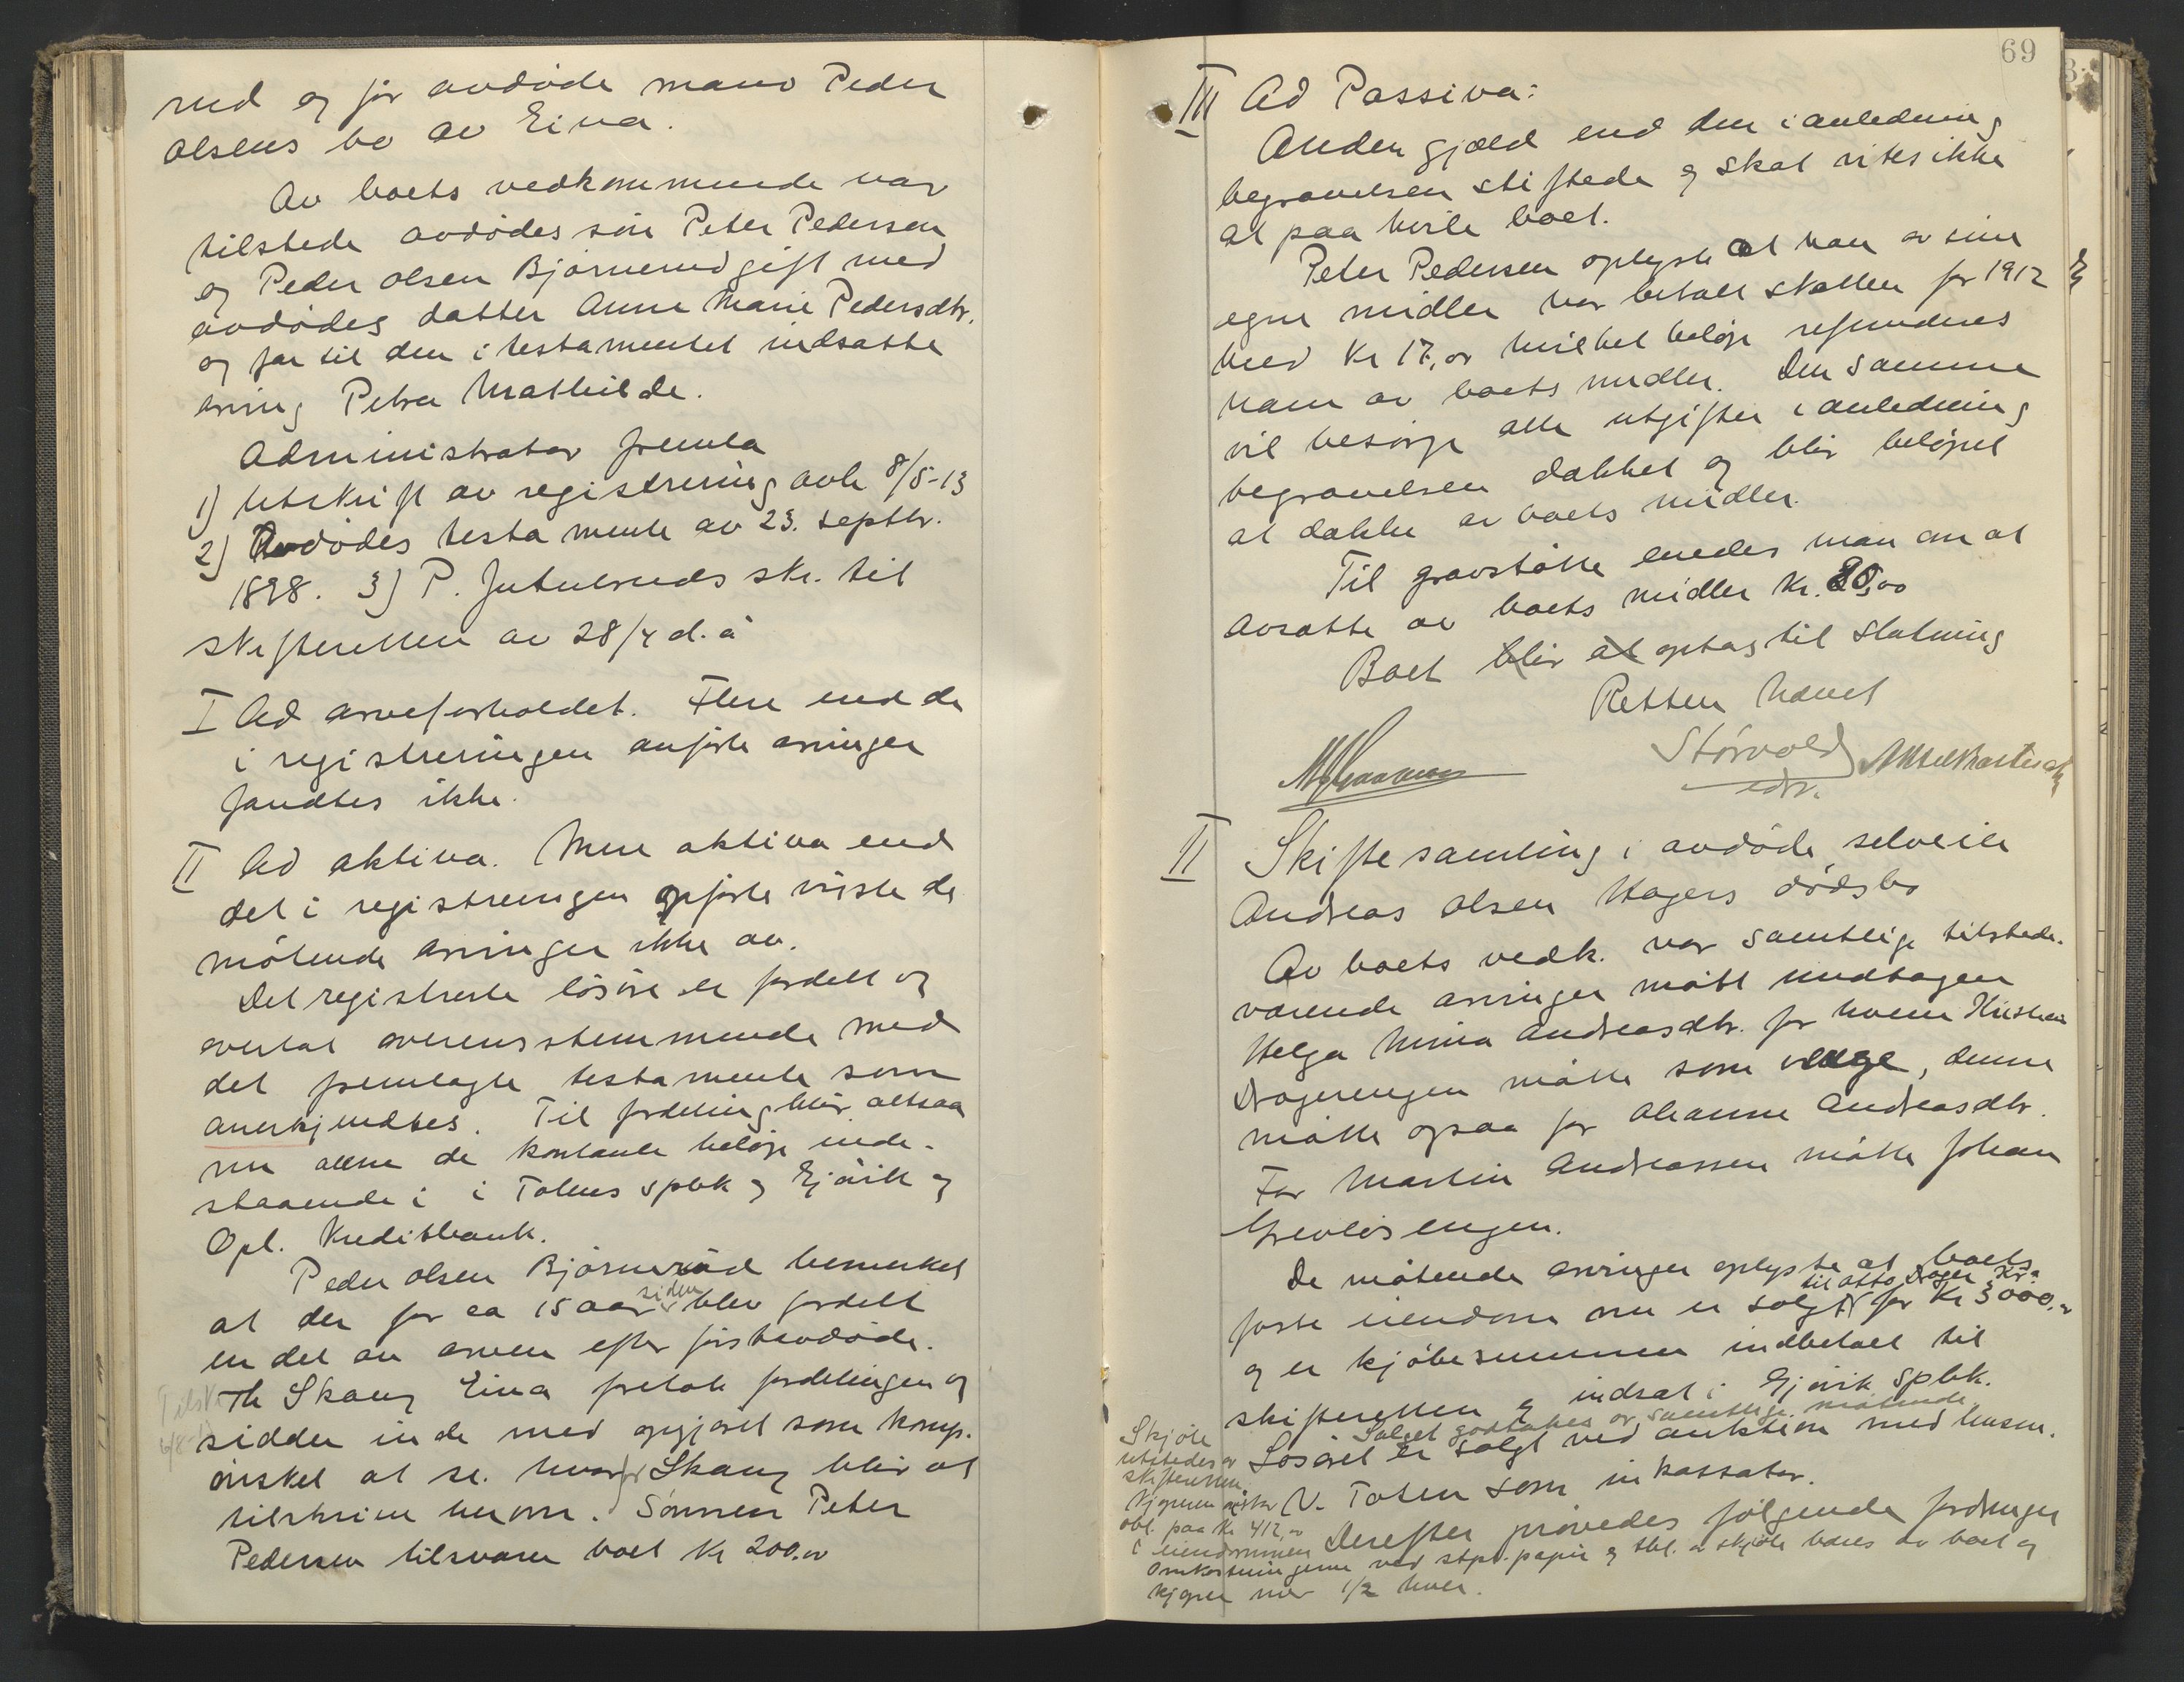 rud og før avdøde mand Peder
Olsens bo av Eina.
Av boets vedkommende var
tilstede avdødes søn Peter Pedersen
og Peder Olsen Bjørnerud gift med
avdødes datter Anne Marie Pedersdtr.
og far til den i testamentet indsatte
arving Petra Mathilde.
Administrator fremla
1) Utskrift av registrering avh 8/5-13
2) Avdødes testamente av 23. septbr.
1898. 3) P. Jutulsruds skr. til
skifteretten av 28/4 d. å
I Ad arveforholdet. Flere end de
i registreringen anførte arvinger
fandtes ikke.
II Ad aktiva. Mere aktiva end
det i registreringen opførte visste de
møtende arvinger ikke av.
Det registrerte løsøre er fordelt og
overtat overensstemmende med
det fremlagte testamente som
anerkjendtes. Til fordeling blir altsaa
nu allene de kontante beløp inde-
staaende i i Totens spbk og Gjøvik og
Opl. Kreditbank.
Peder Olsen Bjørnerud bemerket
at der for ca 15 aar siden blev fordelt
en del av arven efter førstavdøde.
Th Skaug Eina foretok fordelingen og
sidder inde med opgjøret som komp.
ønsket at se. hvorfor Skaug blir at
tilskrive herom. Sønnen Peter
Pedersen tilsvarer boet Kr 200.00
69
III Ad Passiva:
Anden gjæld end den i anledning
begravelsen stiftede og skat vites ikke
at paa hvile boet.
Peter Pedersen oplyste at han av sine
egne midler har betalt skatten for 1912
med Kr 17,00 hvilket beløp refunderes
ham av boets midler. Den samme
vil besørge alle utgifter i anledning
begravelsen dækket og blir beløpet
at dække av boets midler.
Til gravstøtte enedes man om at
avsætte av boets midler Kr. 80,00
Boet blir at optas til slutning
Retten hævet
Størvold
edv.
II Skiftesamling i avdøde selveier
Andreas Olsen Hagers dødsbo
Av boets vedk. var samtlige tilstede-
værende arvinger møtt undtagen
Helga Mina Andreasdtr. for hvem Kristian
Dragerengen møtte som verge, denne
møtte ogsaa for Oleanne Andreasdtr.
For Martin Andreassen møtte Johan
Grevløsengen.
De møtende arvinger oplyste at boets
faste eiendom nu er solgt til Otto Drager for Kr 3000,00
og er kjøbesummen indbetalt til
skifteretten og indsat i Gjøvik spbk.
Salget godtakes av samtlige møtende
Løsøret er solgt ved auktion med lensm.
V. Toten som inkassator.
Derefter prøvedes følgende fordringer
Skjøte
utstedes av
skifteretten
Kjøperen
obl. paa Kr 412,00
i eiendommen
Omkostningerne ved stpl. papir og tbl. av skjøte bæres av boet og
kjøper med 1/2 hver.